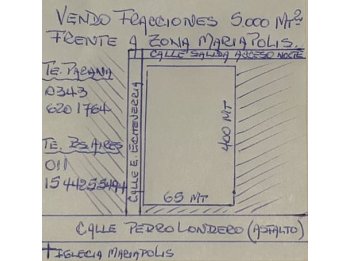 VENDO FRACCIONES 5.000 MT2
FRENTE A ZONA MARIAPOLIS.
CALLE SALIDA ACCESO NORTE
TE. PARANA
0343
6201764
TE. BS. AIRES
011
CALLE E. ECHEVERRIA
400 MT
65 MT
CALLE PEDRO LONDERO (ASFALTO)
IGLECIA MARIAPOLIS